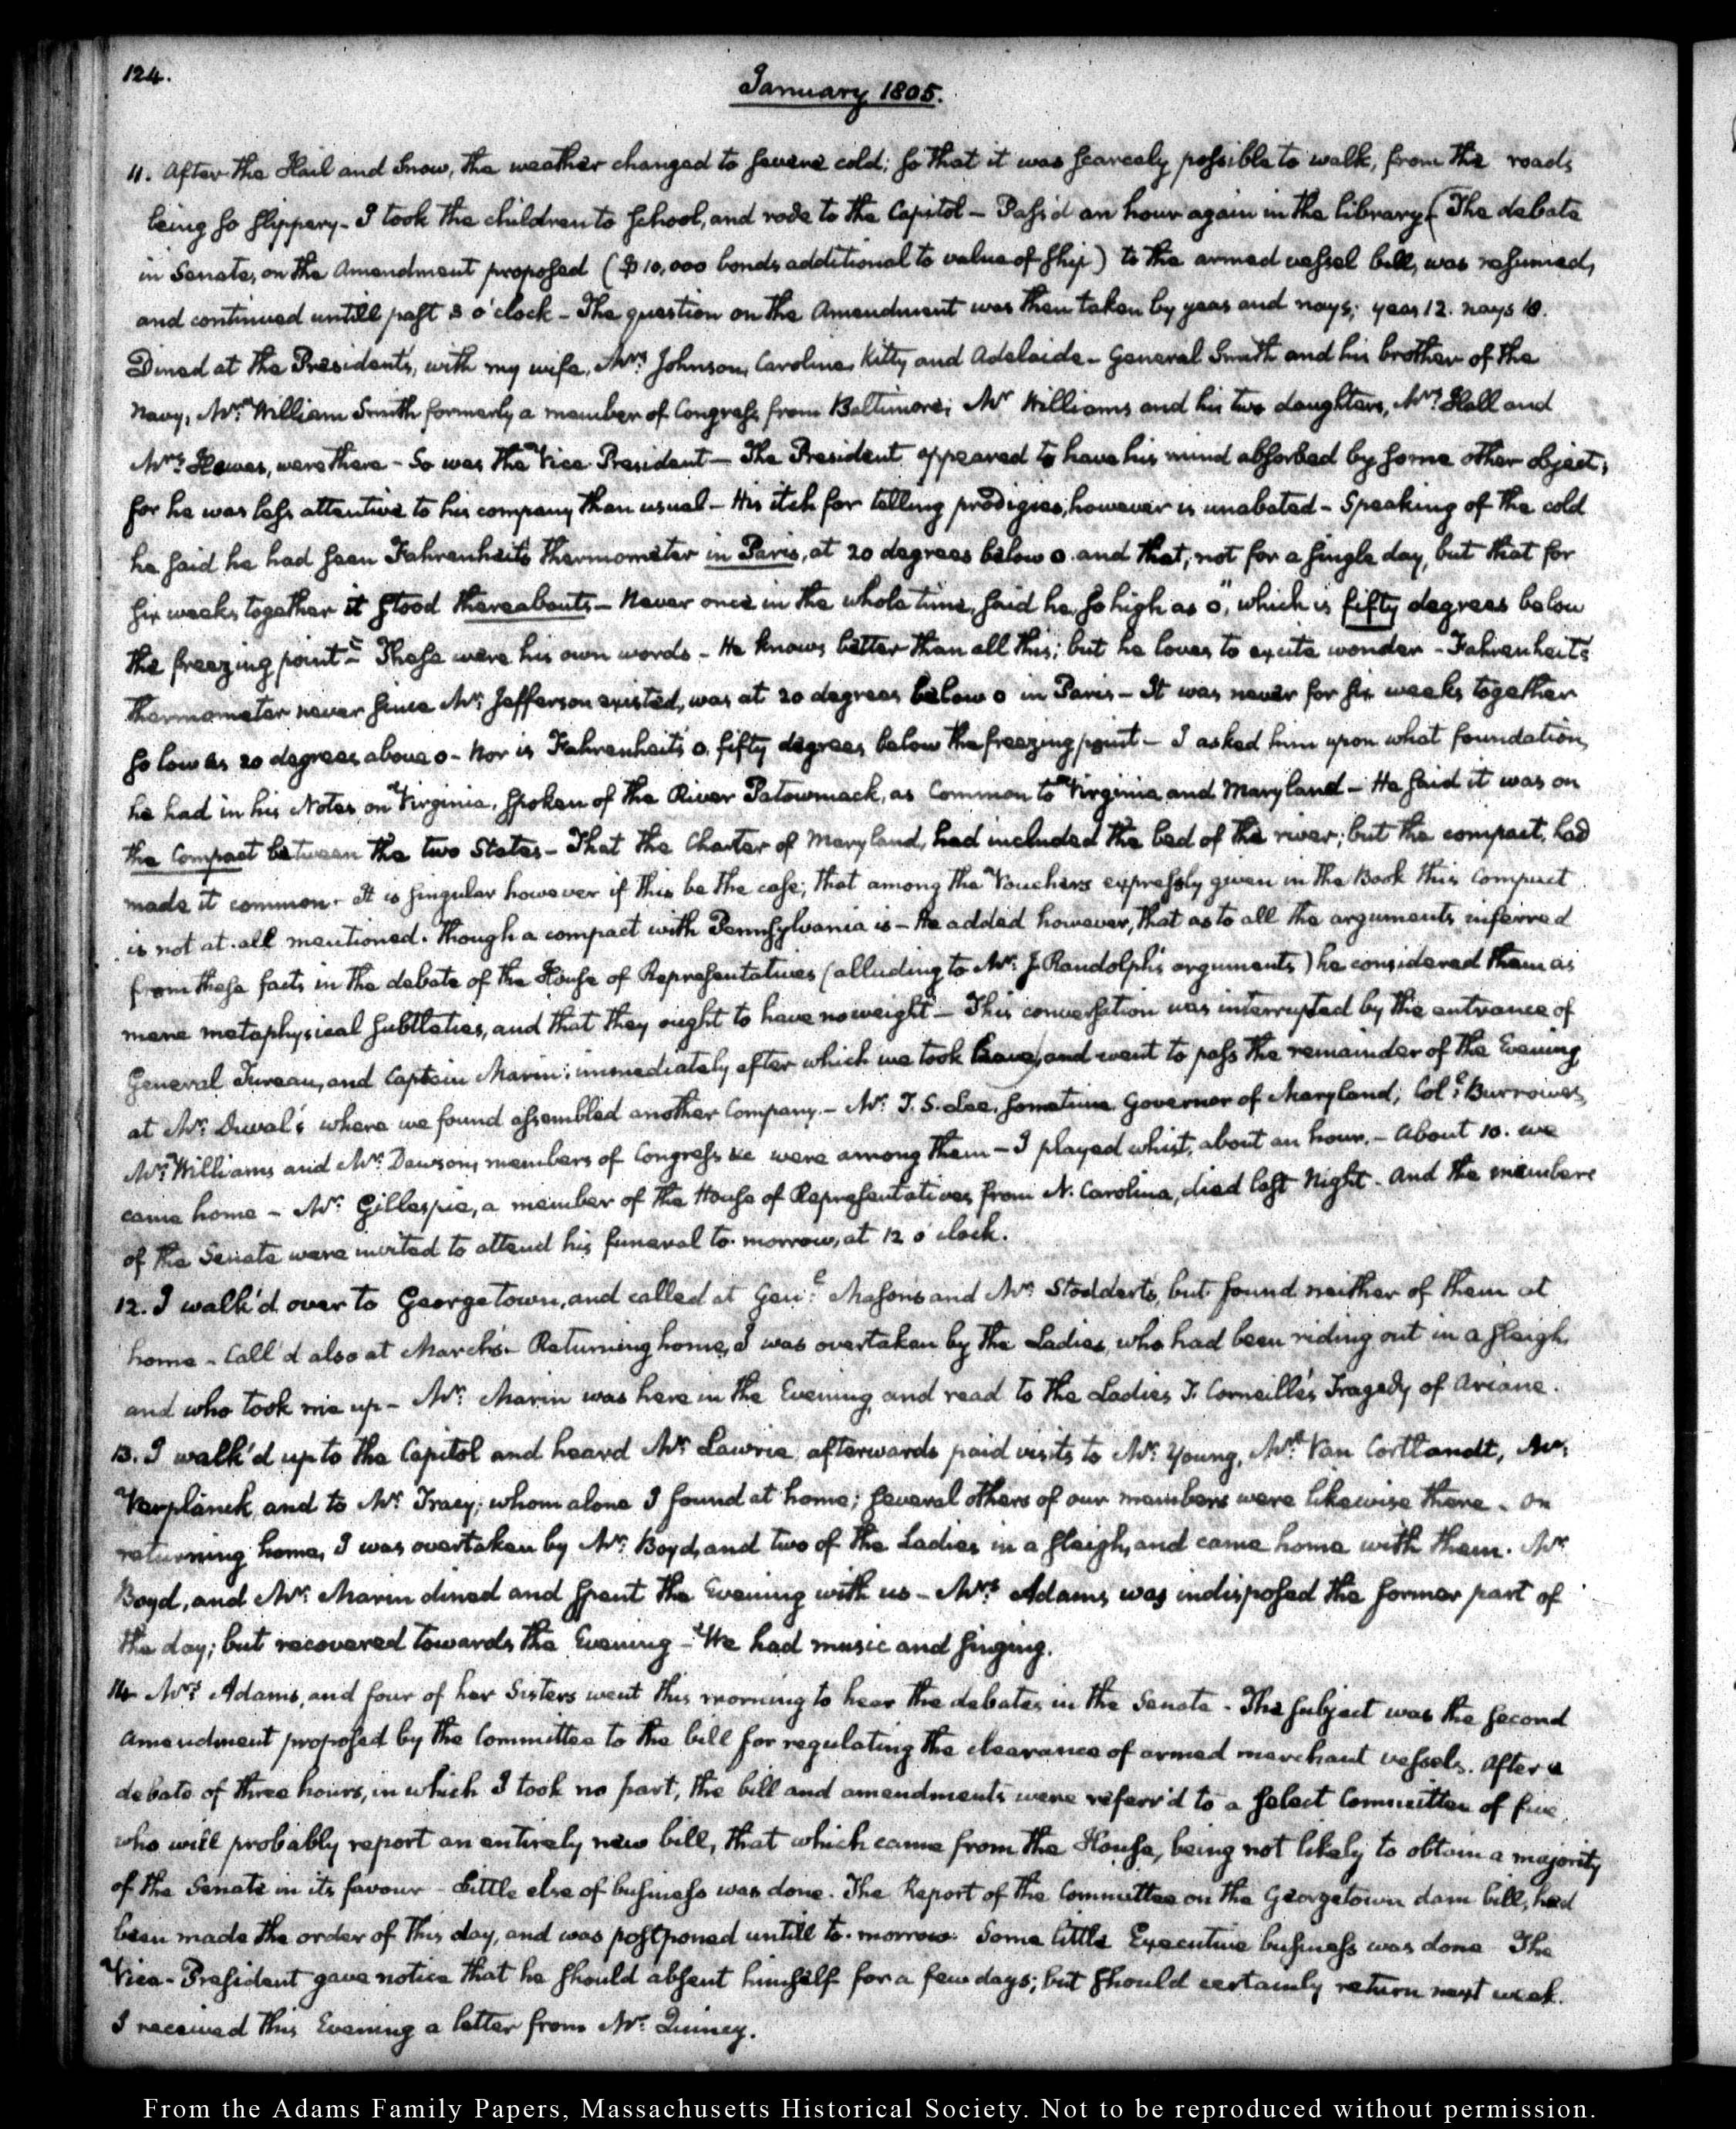 124.
January 1805.
11. After the Hail and Snow, the weather changed to severe cold; so that it was scarcely possible to walk, from the roads
being so slippery- I took the children to school, and rode to the Capitol - Pass'd an hour again in the library (The debate
in Senate, on the Amendment proposed ($10,000 bonds additional to value of ship) to the armed vessel bill, was resumed,
and continued untill past 3 o'clock - The question on the Amendment was then taken by yeas and nays; yeas 12. nays 18.
Dined at the President's, with my wife, Mrs. Johnson, Caroline, Kitty and Adelaide - General Smith and his brother of the
Navy, Mr. William Smith formerly a member of Congress from Baltimore; Mr Williams and his two daughters, Mrs. Hall and
Mrs. Hewes, were there - So was the Vice President - The President appeared to have his mind absorbed by some other object;
for he was less attentive to his company than usual - His itch for telling prodigies, however is unabated - Speaking of the cold
he said he had seen Fahrenheit's thermometer in Paris, at 20 degrees below 0. and that, not for a single day, but that for
six weeks together it stood thereabouts - Never once in the whole time, said he, so high as 0", which is fifty degrees below
the freezing point - These were his own words - He knows better than all this; but he loves to excite wonder - Fahrenheit's
thermometer never since Mr. Jefferson existed, was at 20 degrees below 0 in Paris - It was never for six weeks together
so low as 20 degrees above 0 - Nor is Fahrenheit's 0. fifty degrees below the freezing point - I asked him upon what foundation,
he had in his Notes on Virginia, spoken of the River Patowmack, as Common to Virginia and Maryland - He said it was on
the Compact between the two States - That the Charter of Maryland, had included the bed of the river; but the compact, had
made it common. It is singular however if this be the case; that among the Vouchers expressly given in the Book this Compact
is not at all mentioned. though a compact with Pennsylvania is - He added however, that as to all the arguments inferred
from these facts in the debate of the House of Representatives (alluding to Mr. J. Randolph's arguments) he considered them as
mere metaphysical subtleties, and that they ought to have no weight - This conversation was interrupted by the entrance of
General Tureau, and Captain Marin: immediately after which we took leave, and went to pass the remainder of the Evening
at Mr. Duval's where we found assembled another Company. - Mr. T. S. Lee, sometime Governor of Maryland; Col: Burrowes,
Mr. Williams and Mr. Dawson, members of Congress &c were among them - I played whist, about an hour. - About 10. we
came home - Mr. Gillespie, a member of the House of Representatives from N. Carolina, died last Night - And the members
of the Senate were invited to attend his funeral to-morrow, at 12 o'clock.
12. I walk'd over to Georgetown, and called at Genl. Mason's and Mr. Stodderts, but found neither of them at
home - Call'd also at March's - Returning home, I was overtaken by the Ladies, who had been riding out in a sleigh,
and who took me up - Mr. Marin was here in the Evening, and read to the Ladies T. Corneille's Tragedy of Ariane.
13. I walk'd up to the Capitol and heard Mr. Lawrie, afterwards paid visits to Mr. Young, Mr. Van Cortlandt, Mr.
Verplanck, and to Mr. Tracy; whom alone I found at home; several others of our members were likewise there - On
returning home, I was overtaken by Mr. Boyd, and two of the Ladies in a sleigh, and came home with them. Mr.
Boyd, and Mr. Marin dined and spent the Evening with us - Mrs. Adams, was indisposed the former part of
the day; but recovered towards the Evening - We had music and singing.
14 Mrs. Adams, and four of her Sisters went this morning to hear the debates in the Senate - The subject was the second
amendment proposed by the Committee to the bill for regulating the clearance of armed merchant vessels. After a
debate of three hours, in which I took no part, the bill and amendments were referr'd to a select Committee of five
who will probably report an entirely new bill, that which came from the House, being not likely to obtain a majority
of the Senate in its favour - Little else of business was done. The Report of the Committee on the Georgetown dam bill, had
been made the order of this day, and was postponed untill to-morrow. Some little Executive business was done The
Vice-President gave notice that he should absent himself for a few days; but should certainly return next week.
I received this Evening a letter from Mr. Quincy.
From the Adams Family Papers, Massachusetts Historical Society. Not to be reproduced without permission.